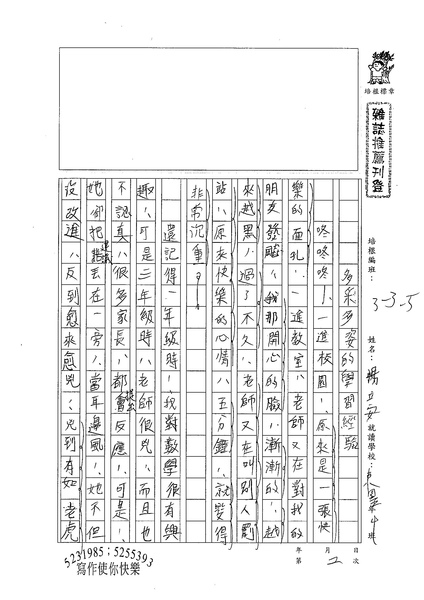 培根標章
雜誌推薦刊登
培根編班：3-3-5 姓名：楊立安 就讀學校： 年 班
年 月 次
第 2
多采多姿的學習經驗
咚咚咚！一進校園，原來是一張快
樂的面孔，一進教室，老師又在對我的
朋友發飆，我那開心的臉，漸漸的，越
來越黑，過了不久，老師又在叫別人罰
站，原來快樂的心情，五分鐘，就變得
非常沉重！
還記得一年級時，我對數學很有興
趣，可是三年級時，老師很兇，而且也
不認真，很多家長，都會提出反應，可是，
她卻把建議丟在一旁，當耳邊風，她不但
沒改進，反到愈來愈兇，兇到有如老虎
5231985；5255393
寫作使你快樂